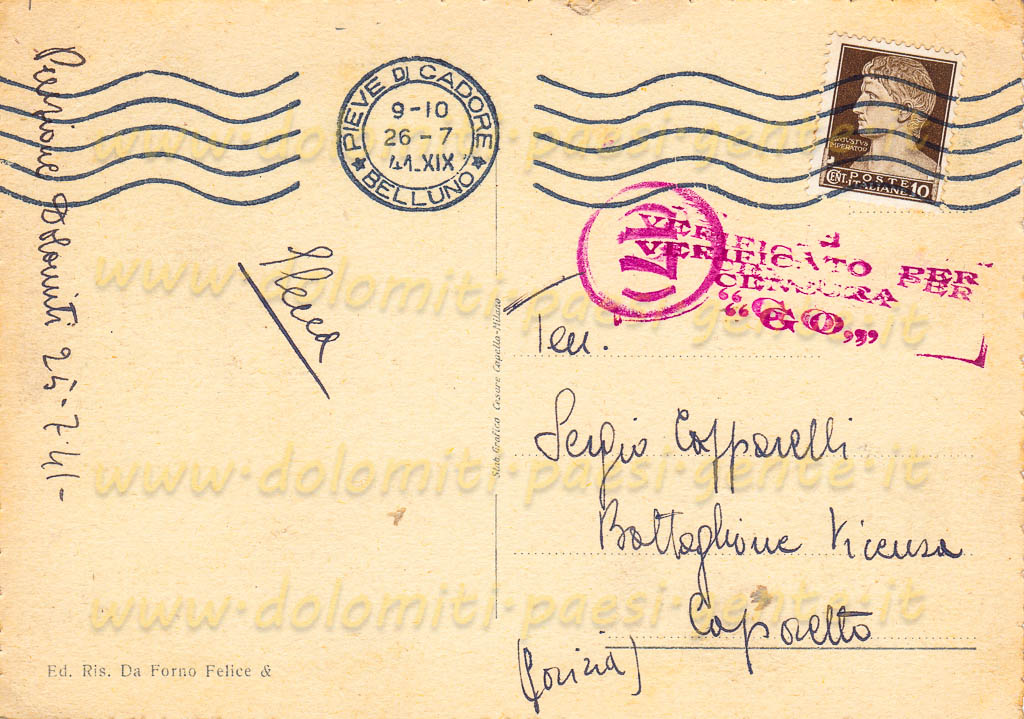 Pensione Dolomiti 25-7-41-
PIEVE DI CADORE
9-10
26-7
41.XIX
BELLUNO
AVGVSTVS
IMPERATOR
POSTE
ITALIANE
CENT. 10
VERIFICATO PER
VERIFICATO PER
CENSURA
"GO"
Ten.
Sergio Capparelli
Battaglione Vicenza
Caporetto
(Gorizia)
Stab. Grafico Cesare Capello-Milano
Ed. Ris. Da Forno Felice &
www.dolomiti-paesi-gente.it
www.dolomiti-paesi-gente.it
www.dolomiti-paesi-gente.it
www.dolomiti-paesi-gente.it